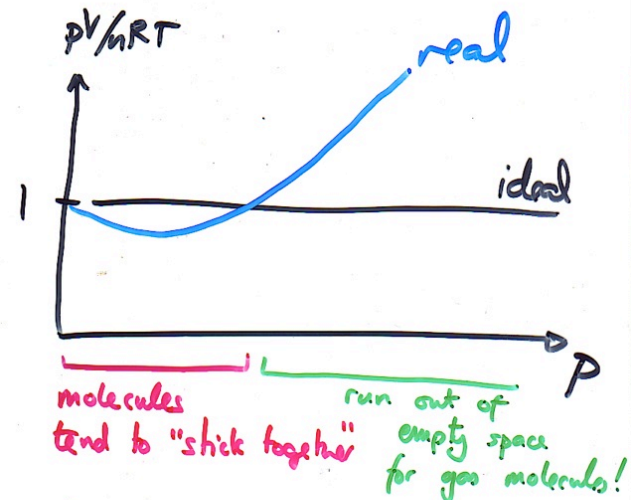 pV/nRT
real
ideal
1
P
molecules
tend to "stick together"
run out of
empty space
for gas molecules!